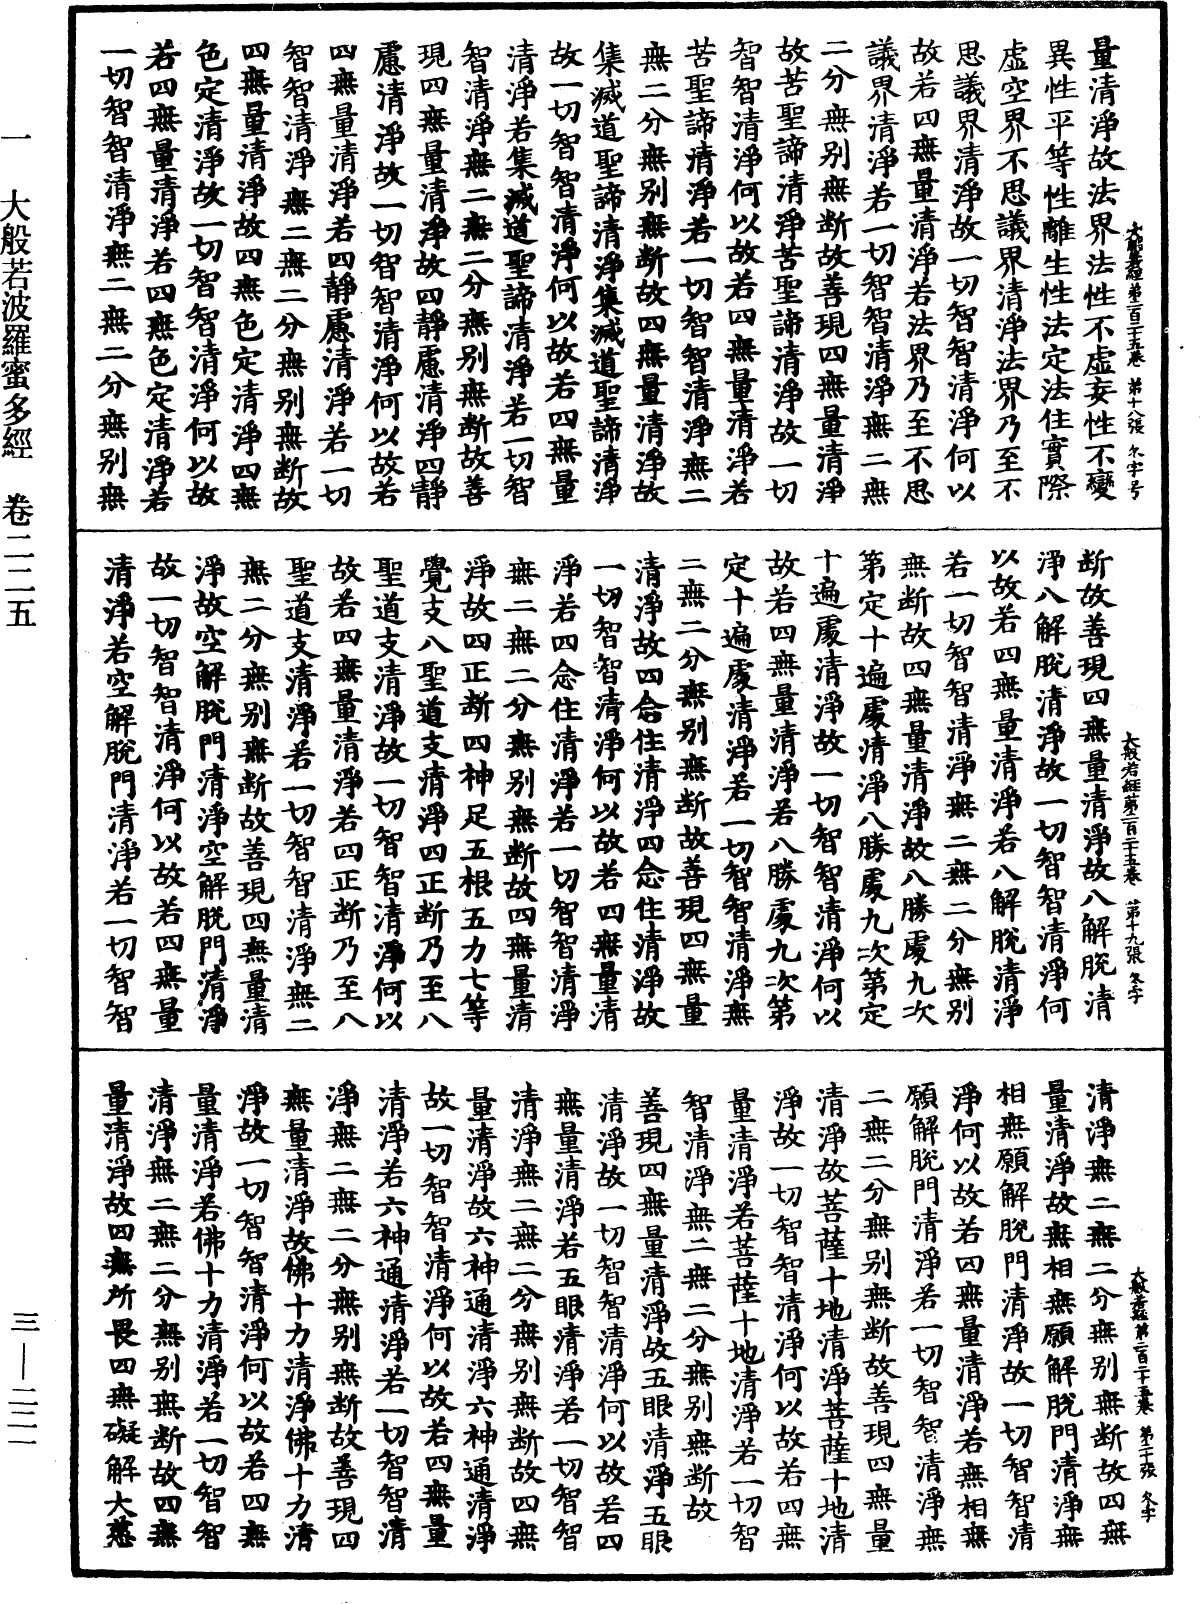 大般若經第二百二十五卷 第十八張 冬字号
量清淨故法界法性不虛妄性不變
異性平等性離生性法定法住實際
虛空界不思議界清淨法界乃至不
思議界清淨故一切智智清淨何以
故若四無量清淨若法界乃至不思
議界清淨若一切智智清淨無二無
二分無別無斷故善現四無量清淨
故苦聖諦清淨苦聖諦清淨故一切
智智清淨何以故若四無量清淨若
苦聖諦清淨若一切智智清淨無二
無二分無別無斷故四無量清淨故
集滅道聖諦清淨集滅道聖諦清淨
故一切智智清淨何以故若四無量
清淨若集滅道聖諦清淨若一切智
智清淨無二無二分無別無斷故善
現四無量清淨故四靜慮清淨四靜
慮清淨故一切智智清淨何以故若
四無量清淨若四靜慮清淨若一切
智智清淨無二無二分無別無斷故
四無量清淨故四無色定清淨四無
色定清淨故一切智智清淨何以故
若四無量清淨若四無色定清淨若
一切智智清淨無二無二分無別無
大般若經第二百二十五卷 第十九張 冬字
斷故善現四無量清淨故八解脫清
淨八解脫清淨故一切智智清淨何
以故若四無量清淨若八解脫清淨
若一切智智清淨無二無二分無別
無斷故四無量清淨故八勝處九次
第定十遍處清淨八勝處九次第定
十遍處清淨故一切智智清淨何以
故若四無量清淨若八勝處九次第
定十遍處清淨若一切智智清淨無
二無二分無別無斷故善現四無量
清淨故四念住清淨四念住清淨故
一切智智清淨何以故若四無量清
淨若四念住清淨若一切智智清淨
無二無二分無別無斷故四無量清
淨故四正斷四神足五根五力七等
覺支八聖道支清淨四正斷乃至八
聖道支清淨故一切智智清淨何以
故若四無量清淨若四正斷乃至八
聖道支清淨若一切智智清淨無二
無二分無別無斷故善現四無量清
淨故空解脫門清淨空解脫門清淨
故一切智智清淨何以故若四無量
清淨若空解脫門清淨若一切智智
大般若經第二百二十五卷 第二十張 冬字
清淨無二無二分無別無斷故四無
量清淨故無相無願解脫門清淨無
相無願解脫門清淨故一切智智清
淨何以故若四無量清淨若無相無
願解脫門清淨若一切智智清淨無
二無二分無別無斷故善現四無量
清淨故菩薩十地清淨菩薩十地清
淨故一切智智清淨何以故若四無
量清淨若菩薩十地清淨若一切智
智清淨無二無二分無別無斷故
善現四無量清淨故五眼清淨五眼
清淨故一切智智清淨何以故若四
無量清淨若五眼清淨若一切智智
清淨無二無二分無別無斷故四無
量清淨故六神通清淨六神通清淨
故一切智智清淨何以故若四無量
清淨若六神通清淨若一切智智清
淨無二無二分無別無斷故善現四
無量清淨故佛十力清淨佛十力清
淨故一切智智清淨何以故若四無
量清淨若佛十力清淨若一切智智
清淨無二無二分無別無斷故四無
量清淨故四無所畏四無礙解大慈
一 大般若波羅蜜多經 卷二二五
三—二二一